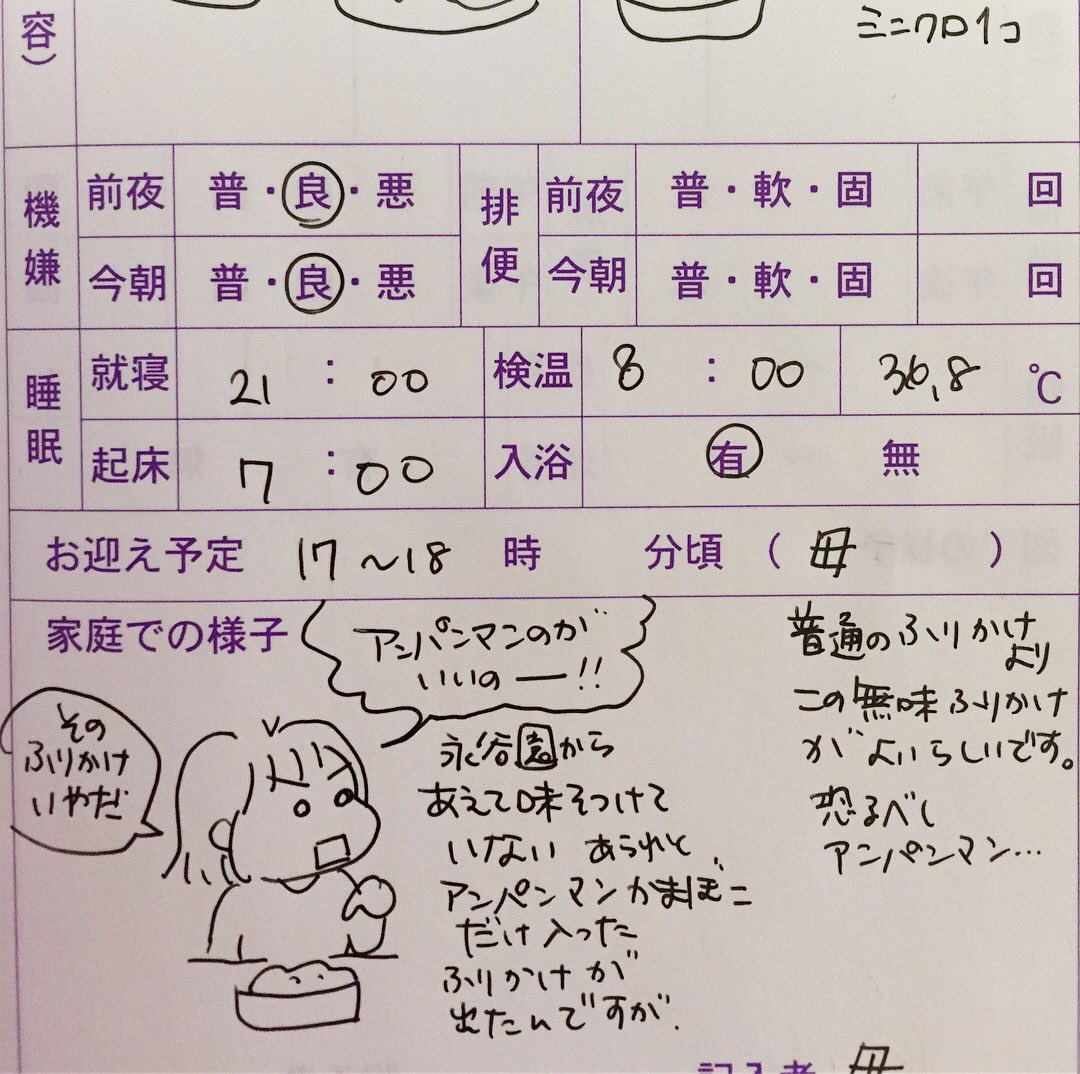 容)
ミニクロ1コ
機嫌
前夜 普・良・悪
今朝 普・良・悪
排便
前夜 普・軟・固 回
今朝 普・軟・固 回
睡眠
就寝 21:00
検温 8:00 36,8 ℃
起床 7:00
入浴 有 無
お迎え予定 17〜18 時 分頃 ( 母 )
家庭での様子
アンパンマンのが
いいのー!!
その
ふりかけ
いやだ
永谷園から
あえて味をつけて
いない あられと、
アンパンマンかまぼこ
だけ入った
ふりかけが
出たんですが、
普通のふりかけ
より
この無味ふりかけ
がよいらしいです。
恐るべし
アンパンマン…
記入者 母